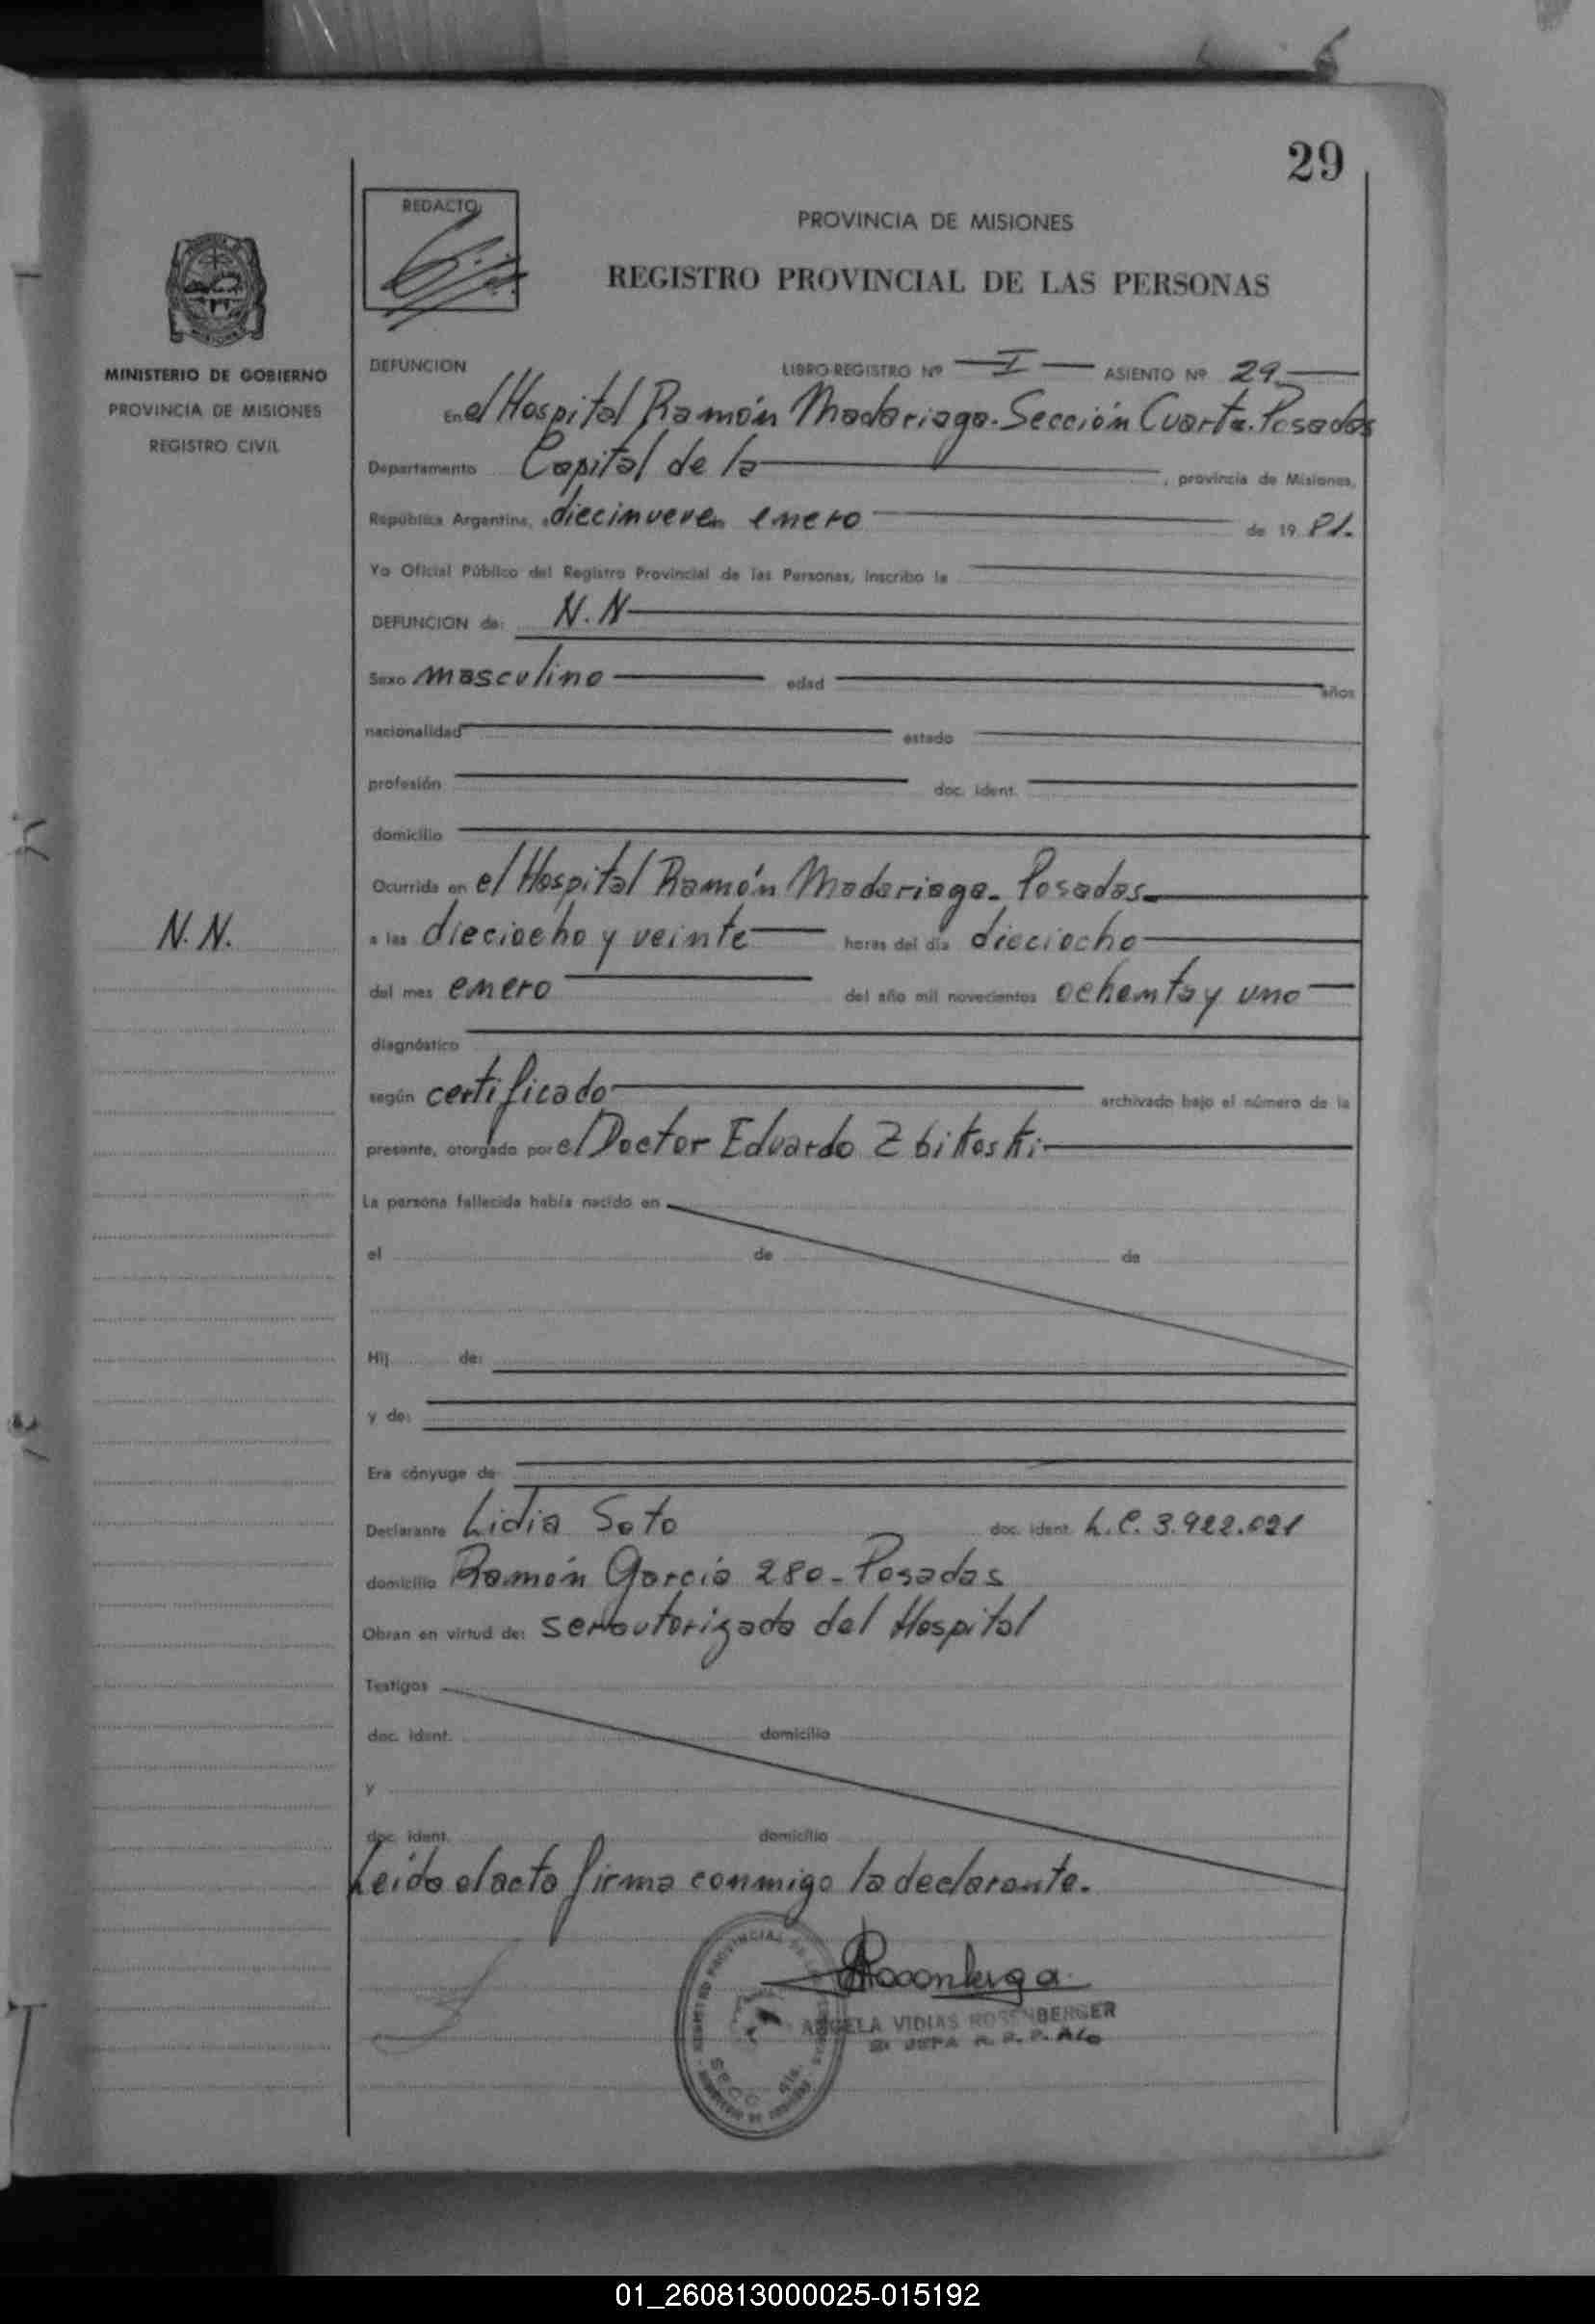 29
REDACTO
PROVINCIA DE MISIONES
REGISTRO PROVINCIAL DE LAS PERSONAS
MINISTERIO DE GOBIERNO
PROVINCIA DE MISIONES
REGISTRO CIVIL
DEFUNCION LIBRO-REGISTRO Nº I ASIENTO Nº 29
En el Hospital Ramón Madariaga. Sección Cuarta. Posadas
Departamento Capital de la , provincia de Misiones,
República Argentina, a diecinueve en enero de 19 81.
Yo Oficial Público del Registro Provincial de las Personas, inscribo la
DEFUNCION de: N.N
Sexo masculino edad años
nacionalidad estado
profesión doc. ident.
domicilio
Ocurrida en el Hospital Ramón Madariaga. Posadas
N.N.
a las dieciocho y veinte horas del día dieciocho
del mes enero del año mil novecientos ochenta y uno
diagnóstico
según certificado archivado bajo el número de la
presente, otorgado por el Doctor Eduardo Zbikoski
La persona fallecida había nacido en
el de de
Hij de:
y de:
Era cónyuge de
Declarante Lidia Soto doc. ident. L.C. 3.922.021
domicilio Ramón García 280 - Posadas
Obran en virtud de: ser autorizada del Hospital
Testigos
doc. ident. domicilio
y
doc. ident. domicilio
Leída el acta firma conmigo la declarante.
ANGELA VIDIAS ROSENBERGER
01_260813000025-015192